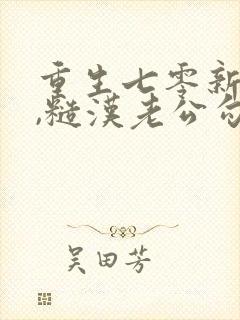 重生七零新
,糙漢老公勾
吴田芳